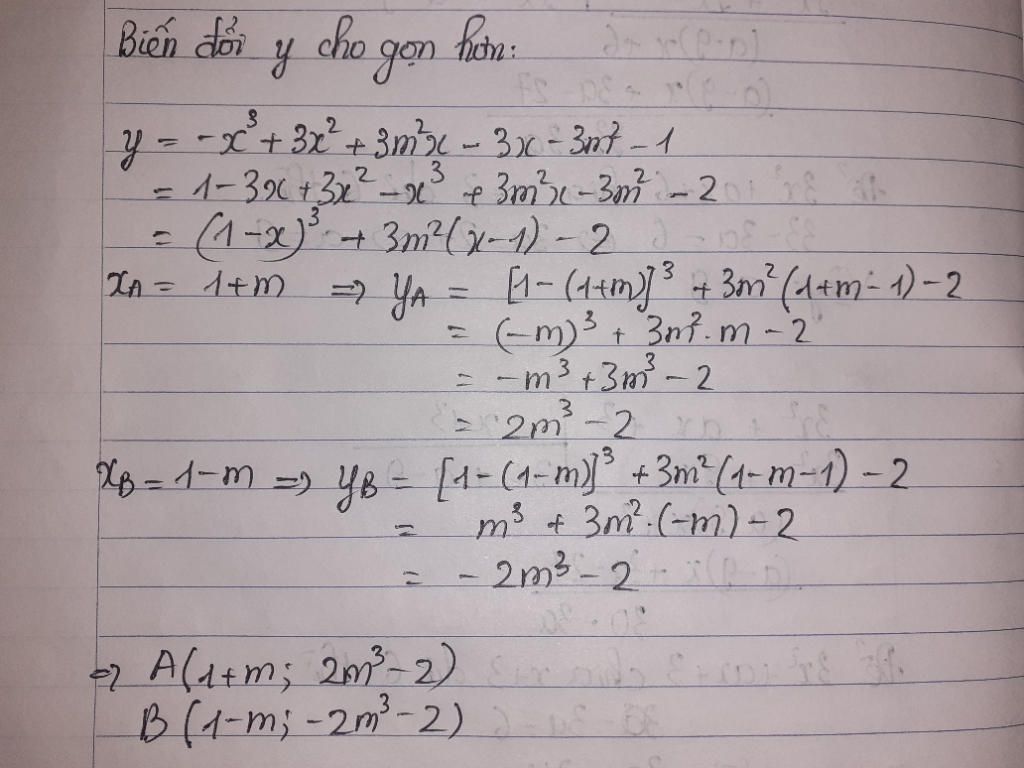 Biến đổi y cho gọn hơn:
y = -x³ + 3x² + 3m²x - 3x - 3m² - 1
= 1 - 3x + 3x² - x³ + 3m²x - 3m² - 2
= (1-x)³ + 3m²(x-1) - 2
x_A = 1+m => y_A = [1-(1+m)]³ + 3m²(1+m-1) - 2
= (-m)³ + 3m².m - 2
= -m³ + 3m³ - 2
= 2m³ - 2
x_B = 1-m => y_B = [1-(1-m)]³ + 3m²(1-m-1) - 2
= m³ + 3m².(-m) - 2
= -2m³ - 2
=> A(1+m; 2m³-2)
B(1-m; -2m³-2)